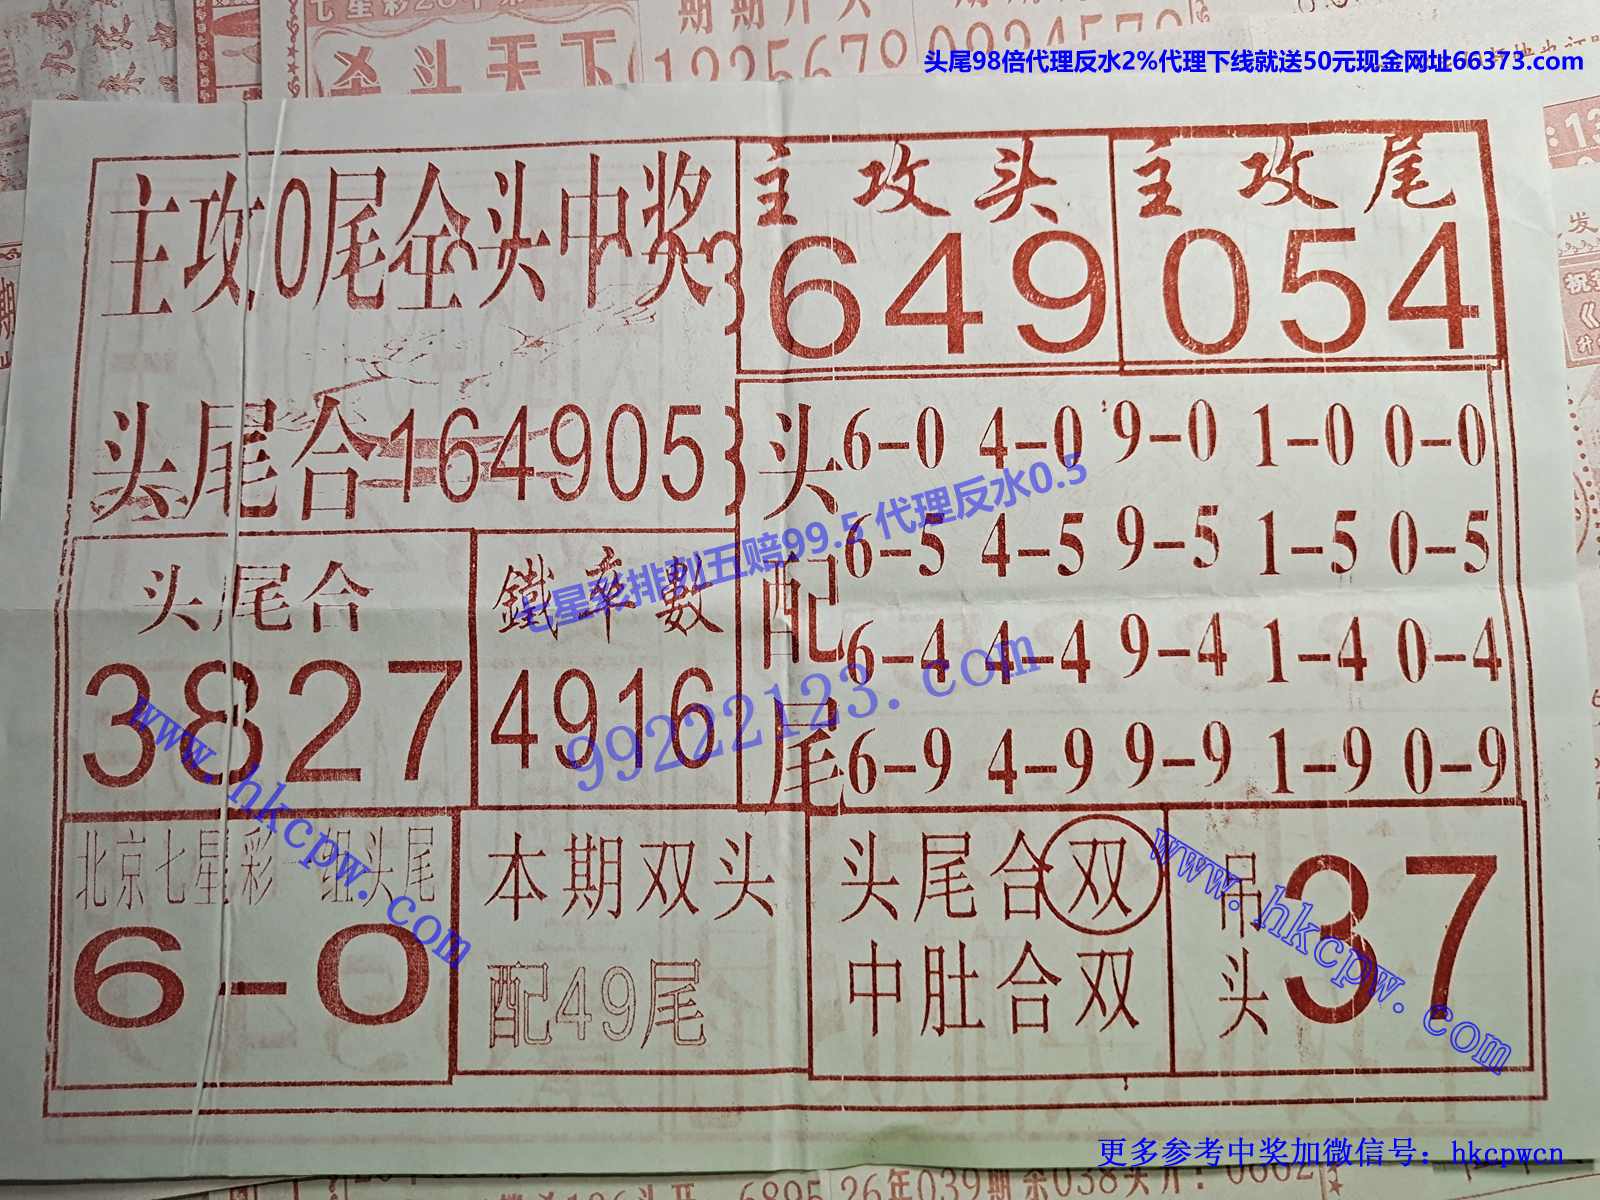 七星彩26年第
期期开头
杀斗天下
1225678
09234578
头尾98倍代理反水2%代理下线就送50元现金网址66373.com
主攻0尾全头中奖
主攻头
649
主攻尾
054
头尾合164905
头配尾
6-0 4-0 9-0 1-0 0-0
6-5 4-5 9-5 1-5 0-5
6-4 4-4 9-4 1-4 0-4
6-9 4-9 9-9 1-9 0-9
七星彩排列五赔99.5 代理反水0.5
头尾合
3827
鐵率數
4916
99222123.com
www.hkcpw.com
北京七星彩一组头尾
6-0
本期双头
配49尾
头尾合双
中肚合双
吊头
37
www.hkcpw.com
更多参考中奖加微信号：hkcpwcn
6895
26年039期杀038头开：0662